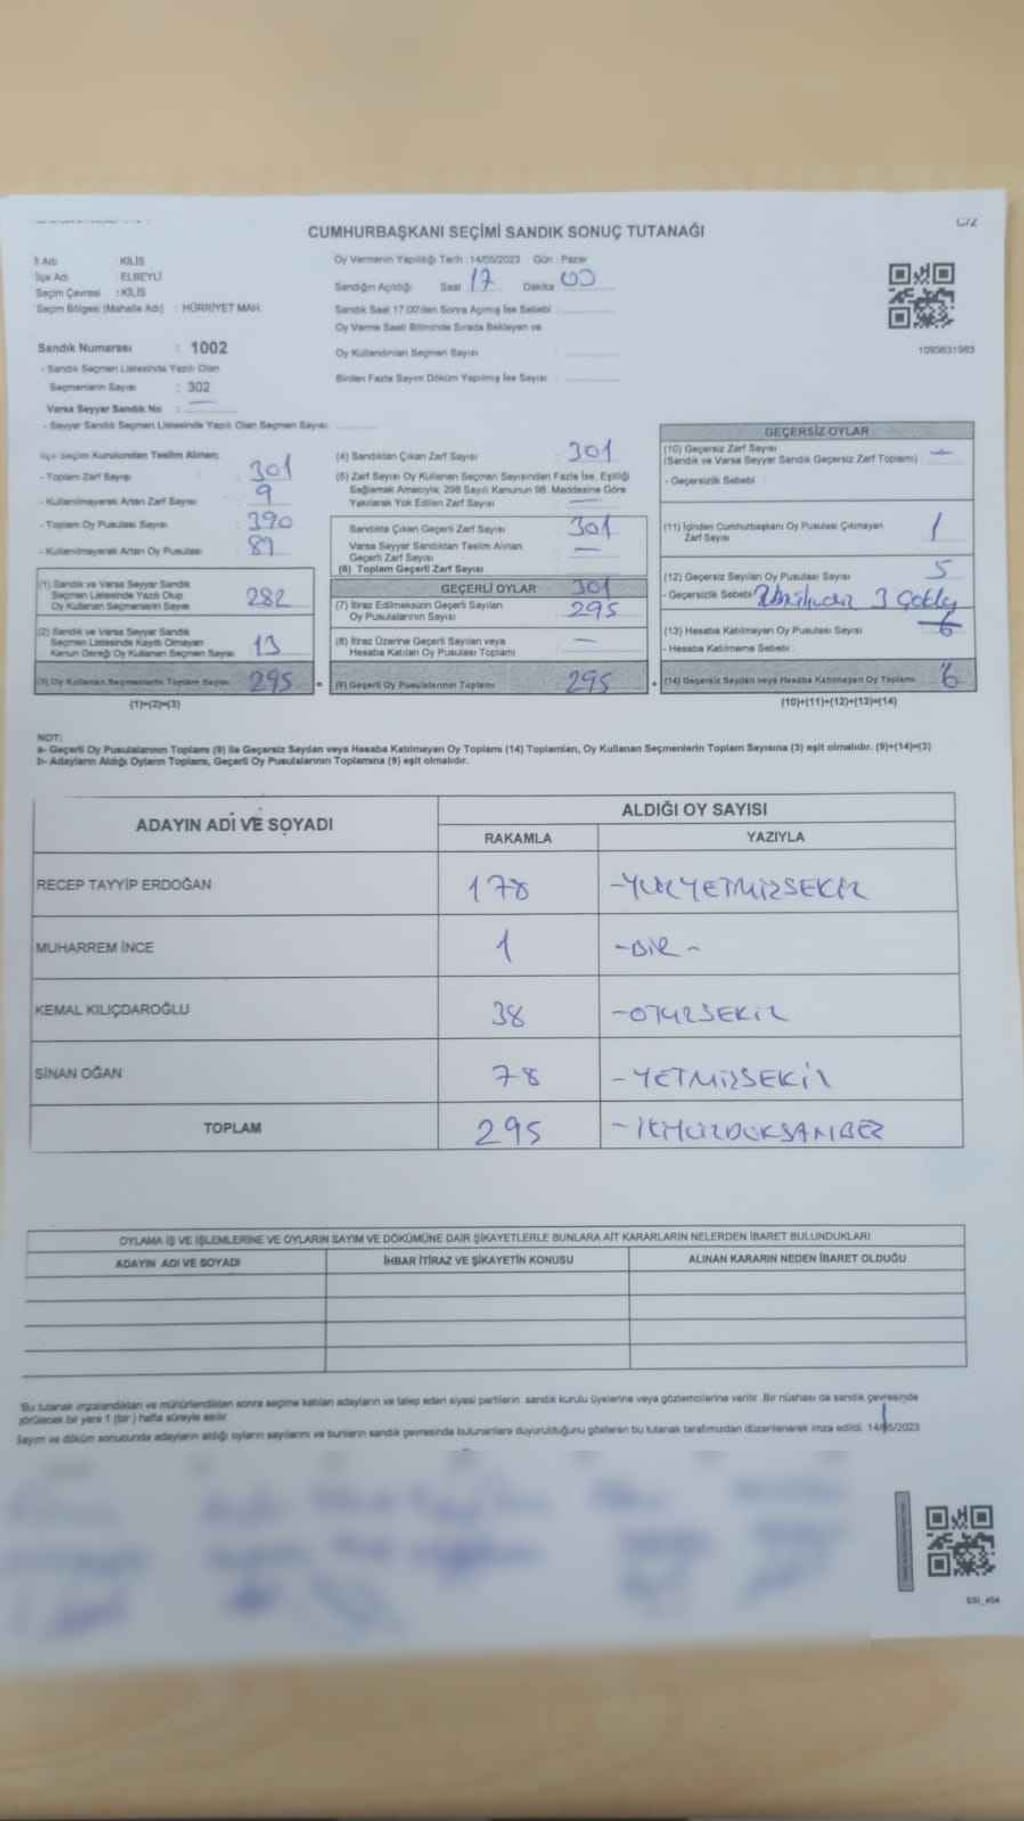 CUMHURBAŞKANI SEÇİMİ SANDIK SONUÇ TUTANAĞI
C/2
İl Adı KİLİS
İlçe Adı ELBEYLİ
Seçim Çevresi : KİLİS
Seçim Bölgesi (Mahalle Adı) : HÜRRİYET MAH.
Sandık Numarası : 1002
- Sandık Seçmen Listesinde Yazılı Olan
Seçmenlerin Sayısı : 302
Varsa Seyyar Sandık No :
- Seyyar Sandık Seçmen Listesinde Yazılı Olan Seçmen Sayısı
Oy Vermenin Yapıldığı Tarih : 14/05/2023 Gün : Pazar
Sandığın Açıldığı Saat 17 Dakika 00
Sandık Saat 17.00'den Sonra Açılmış İse Sebebi
Oy Verme Saati Bitiminde Sırada Bekleyen ve
Oy Kullandırılan Seçmen Sayısı
Birden Fazla Sayım Döküm Yapılmış İse Sayısı
1095831983
İlçe Seçim Kurulundan Teslim Alınan;
- Toplam Zarf Sayısı 301
- Kullanılmayarak Artan Zarf Sayısı 9
- Toplam Oy Pusulası Sayısı 390
- Kullanılmayarak Artan Oy Pusulası 89
(1) Sandık ve Varsa Seyyar Sandık
Seçmen Listesinde Yazılı Olup
Oy Kullanan Seçmenlerin Sayısı 282
(2) Sandık ve Varsa Seyyar Sandık
Seçmen Listesinde Kayıtlı Olmayan
Kanun Gereği Oy Kullanan Seçmen Sayısı 13
(3) Oy Kullanan Seçmenlerin Toplam Sayısı 295
(1)+(2)=(3)
(4) Sandıktan Çıkan Zarf Sayısı 301
(5) Zarf Sayısı Oy Kullanan Seçmen Sayısından Fazla İse, Eşitliği
Sağlamak Amacıyla, 298 Sayılı Kanunun 98. Maddesine Göre
Yakılarak Yok Edilen Zarf Sayısı —
Sandıkta Çıkan Geçerli Zarf Sayısı 301
Varsa Seyyar Sandıktan Teslim Alınan
Geçerli Zarf Sayısı —
(6) Toplam Geçerli Zarf Sayısı
GEÇERLİ OYLAR 301
(7) İtiraz Edilmeksizin Geçerli Sayılan
Oy Pusulalarının Sayısı 295
(8) İtiraz Üzerine Geçerli Sayılan veya
Hesaba Katılan Oy Pusulası Toplamı —
(9) Geçerli Oy Pusulalarının Toplamı 295
GEÇERSİZ OYLAR
(10) Geçersiz Zarf Sayısı —
(Sandık ve Varsa Seyyar Sandık Geçersiz Zarf Toplamı)
- Geçersizlik Sebebi
(11) İçinden Cumhurbaşkanı Oy Pusulası Çıkmayan
Zarf Sayısı 1
(12) Geçersiz Sayılan Oy Pusulası Sayısı 5
- Geçersizlik Sebebi 3
(13) Hesaba Katılmayan Oy Pusulası Sayısı
- Hesaba Katılmama Sebebi
(14) Geçersiz Sayılan veya Hesaba Katılmayan Oy Toplamı 6
(10)+(11)+(12)+(13)=(14)
NOT:
a- Geçerli Oy Pusulalarının Toplamı (9) ile Geçersiz Sayılan veya Hesaba Katılmayan Oy Toplamı (14) Toplamları, Oy Kullanan Seçmenlerin Toplam Sayısına (3) eşit olmalıdır. (9)+(14)=(3)
b- Adayların Aldığı Oyların Toplamı, Geçerli Oy Pusulalarının Toplamına (9) eşit olmalıdır.
ADAYIN ADI VE SOYADI ALDIĞI OY SAYISI
RAKAMLA YAZIYLA
RECEP TAYYİP ERDOĞAN 178 -YÜZYETMİŞSEKİZ
MUHARREM İNCE 1 -BİR-
KEMAL KILIÇDAROĞLU 38 -OTUZSEKİZ
SİNAN OĞAN 78 -YETMİŞSEKİZ
TOPLAM 295 -İKİYÜZDOKSANBEŞ
OYLAMA İŞ VE İŞLEMLERİNE VE OYLARIN SAYIM VE DÖKÜMÜNE DAİR ŞİKAYETLERLE BUNLARA AİT KARARLARIN NELERDEN İBARET BULUNDUKLARI
ADAYIN ADI VE SOYADI İHBAR İTİRAZ VE ŞİKAYETİN KONUSU ALINAN KARARIN NEDEN İBARET OLDUĞU
Bu tutanak imzalandıktan ve mühürlendikten sonra seçime katılan adayların ve talep eden siyasi partilerin sandık kurulu üyelerine veya gözlemcilerine verilir. Bir nüshası da sandık çevresinde
görülecek bir yere 1 (bir) hafta süreyle asılır.
Sayım ve döküm sonucunda adayların aldığı oyların sayılarını ve bunların sandık çevresinde bulunanlara duyurulduğunu gösteren bu tutanak tarafımızdan düzenlenerek imza edildi. 14/05/2023